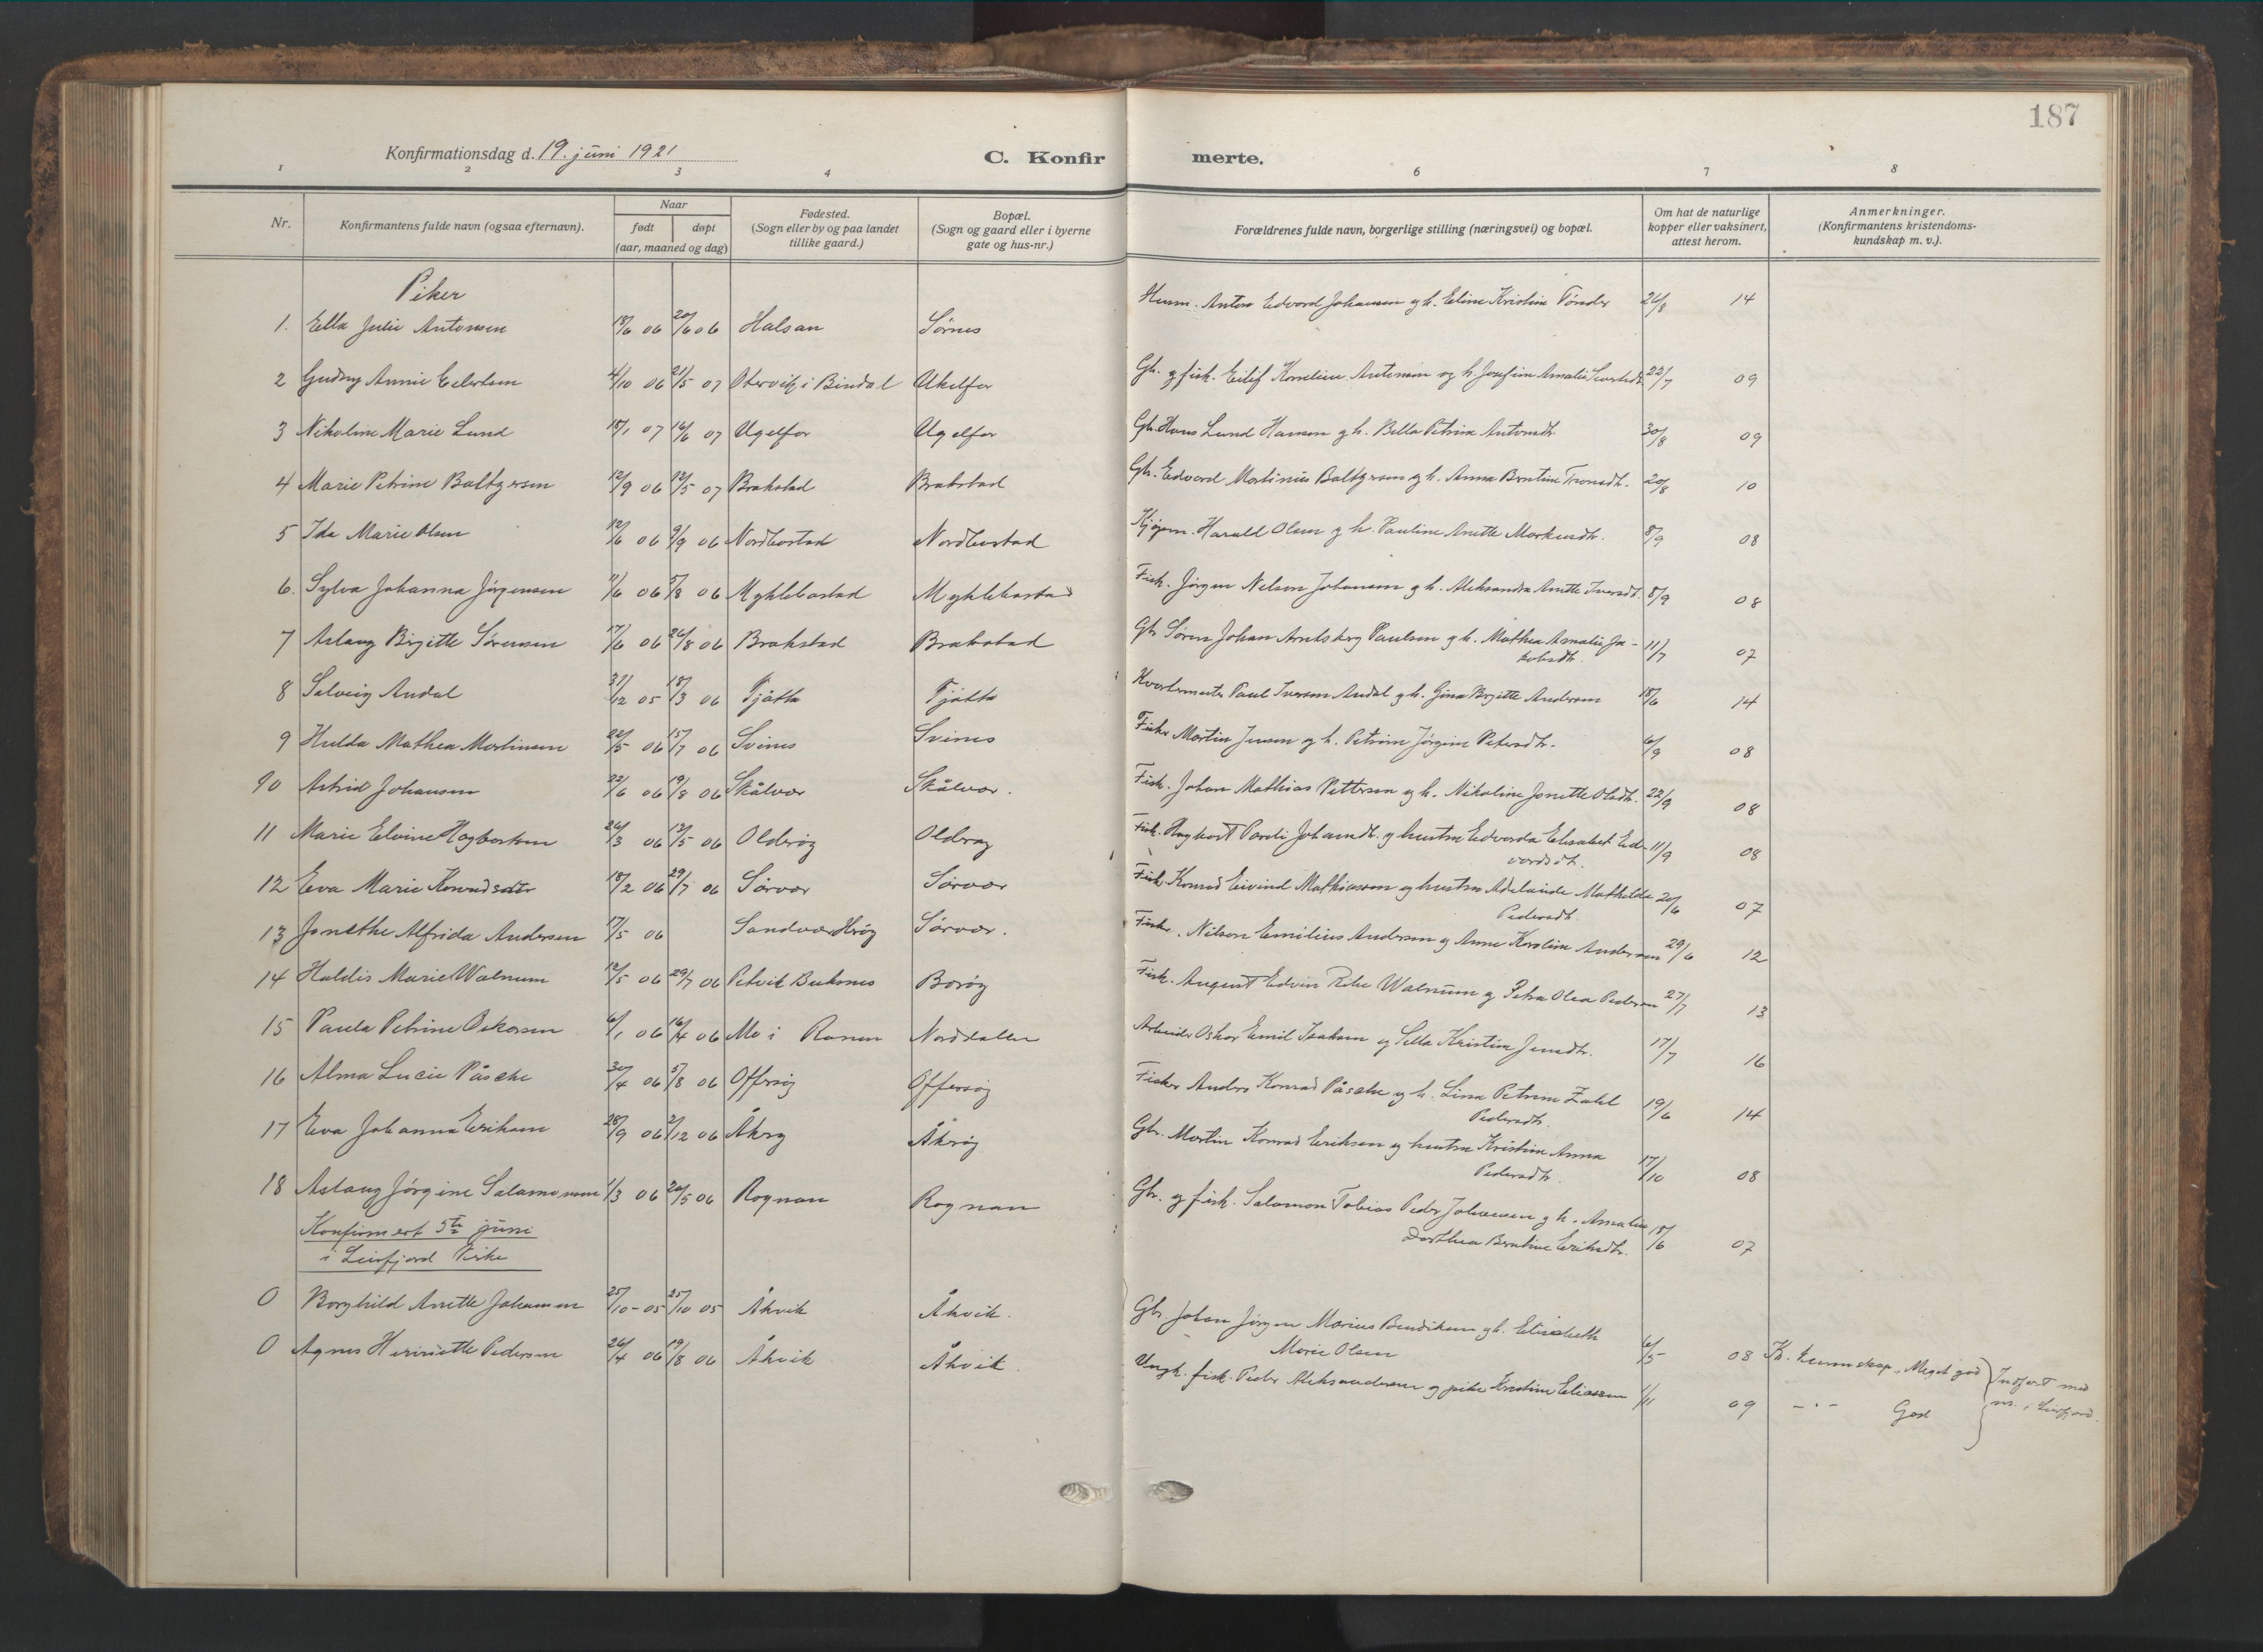 187
Konfirmationsdag d. 19. juni 1921
C. Konfirmerte.
1 2 3 4 6 7 8
Nr. Konfirmantens fulde navn (ogsaa efternavn). Naar født døpt (aar, maaned og dag) Fødested. (Sogn eller by og paa landet tillike gaard.) Bopæl. (Sogn og gaard eller i byerne gate og hus-nr.) Forældrenes fulde navn, borgerlige stilling (næringsvei) og bopæl. Om hat de naturlige kopper eller vaksinert, attest herom. Anmerkninger. (Konfirmantens kristendoms-kundskap m. v.).
Piker
1. Ella Julie Antonsen 18/6 06 20/6 06 Halsan Sørnes Husm. Anton Edvard Johansen g h. Eline Kristine Tønder 26/8 14
2 Gudny Annie Eilertsen 4/10 06 21/5 07 Otervik i Bindal Ukelfor Gb. g fisk. Eilif Kornelius Antonsen og h. Josefine Amalie 22/7 09
3 Nikoline Marie Lund 15/1 07 16/6 07 Ugelfor Ugelfor Gb. Hans Lund Hansen g h. Bella Petrine Antonsdtr. 30/8 09
4 Marie Petrine Baltzersen 12/9 06 12/5 07 Brakstad Brakstad Gb. Edvard Martinus Baltzersen g h. Anna Bentine Tronsdtr. 20/8 10
5 Ida Marie Olsen 12/6 06 9/9 06 Nordbostad Nordbostad Kjøpm. Harald Olsen g h. Pauline Anette Markusdtr. 8/9 08
6. Sylva Johanna Jörgensen 11/6 06 5/8 06 Myklebostad Myklebostad Fisk. Jörgen Nelson Johansen g h. Aleksandra Anette Iversdt. 8/9 08
7 Aslaug Birgitte Sørensen 17/6 06 26/8 06 Brakstad Brakstad Gb. Søren Johan Arntsberg Paulsen g h. Mathea Amalie Ja-
kobsdtr. 11/7 07
8 Solveig Andal 31/12 05 18/3 06 Tjøtta Tjøtta Kvartermester Paul Iverson Andal g h. Gina Birgitte Andersen 18/6 14
9 Hulda Mathea Martinsen 22/5 06 15/7 06 Svines Svines Fisker Martin Jensen og h. Petrine Jörgine Petersdtr. 6/9 08
10 Astrid Johansen 22/6 06 19/8 06 Skålvær Skålvær. Fisk. Johan Mathias Pettersen og h. Nikoline Jonette Olsdtr. 22/9 08
11 Marie Elvine Hagbartsen 26/3 06 13/5 06 Olderöy Olderøy Fisk. Hagbart Pareli Johansdt. g hustru Edvarda Elisabet Ed-
vardsdt. 11/9 08
12 Eva Marie Konradsdtr 18/2 06 29/7 06 Sørvær Sørvær Fisk. Konrad Eivind Mathiassen og hustru Adelaide Mathilde
Pedersdt. 20/6 07
13 Jonethe Alfrida Andersen 17/5 06 Sandvær Herøy Sørvær. Fisker. Nilson Emilius Andersen g Anne Karoline Andersen 29/6 12
14 Haldis Marie Walnum 12/5 06 29/7 06 Petvik Buksnes Borøy Fisk. August Edvin Walnum g Petra Olea Pedersen 27/7 13
15 Paula Petrine Oskarsen 6/1 06 16/4 06 Mo i Ranen Norddalen Arbeider Oskar Emil Isaksen g Sella Kristine Jensdtr. 17/7 16
16 Alma Lucie Påsche 30/4 06 5/8 06 Offersöy Offersöy Fisker Anders Konrad Påsche g h. Lina Petrine Zahl
Pedersdtr. 19/6 14
17 Eva Johanna Eriksen 28/9 06 2/12 06 Åkrøy Åkrøy Gbr. Martin Konrad Eriksen g hustru Kristine Anna
Pedersdtr. 17/10 08
18 Aslaug Jörgine Salamonsen 1/3 06 20/5 06 Rognan Rognan Gbr. g fisk. Salamon Tobias Peder Johansen g h. Amalie
Dorthea Bentine Eriksdtr. 15/6 07
Konfirmert 5te juni
i Leirfjord Kirke
0 Borghild Anette Johansen 25/10-05 25/10 05 Åkvik Åkvik. Gbr. Johan Jörgen Marius Bendiksen g h. Elisabeth
Marie Olsen 6/5 08 Kr. kunnskap. Meget god } Indført med
0 Agnes Henriette Pedersen 26/4 06 19/8 06 Åkvik Åkvik. Ungk. fisk. Peder Aleksandersen g pike Kristine Eliassen 1/11 09 - " - God } nr. i Leirfjord.